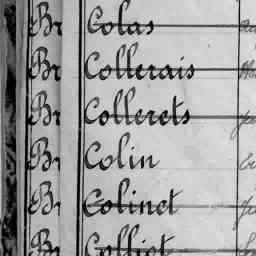 Br Colas
Br Collerais
Br Collerets
Br Colin
Br Colinet
Br Colliot